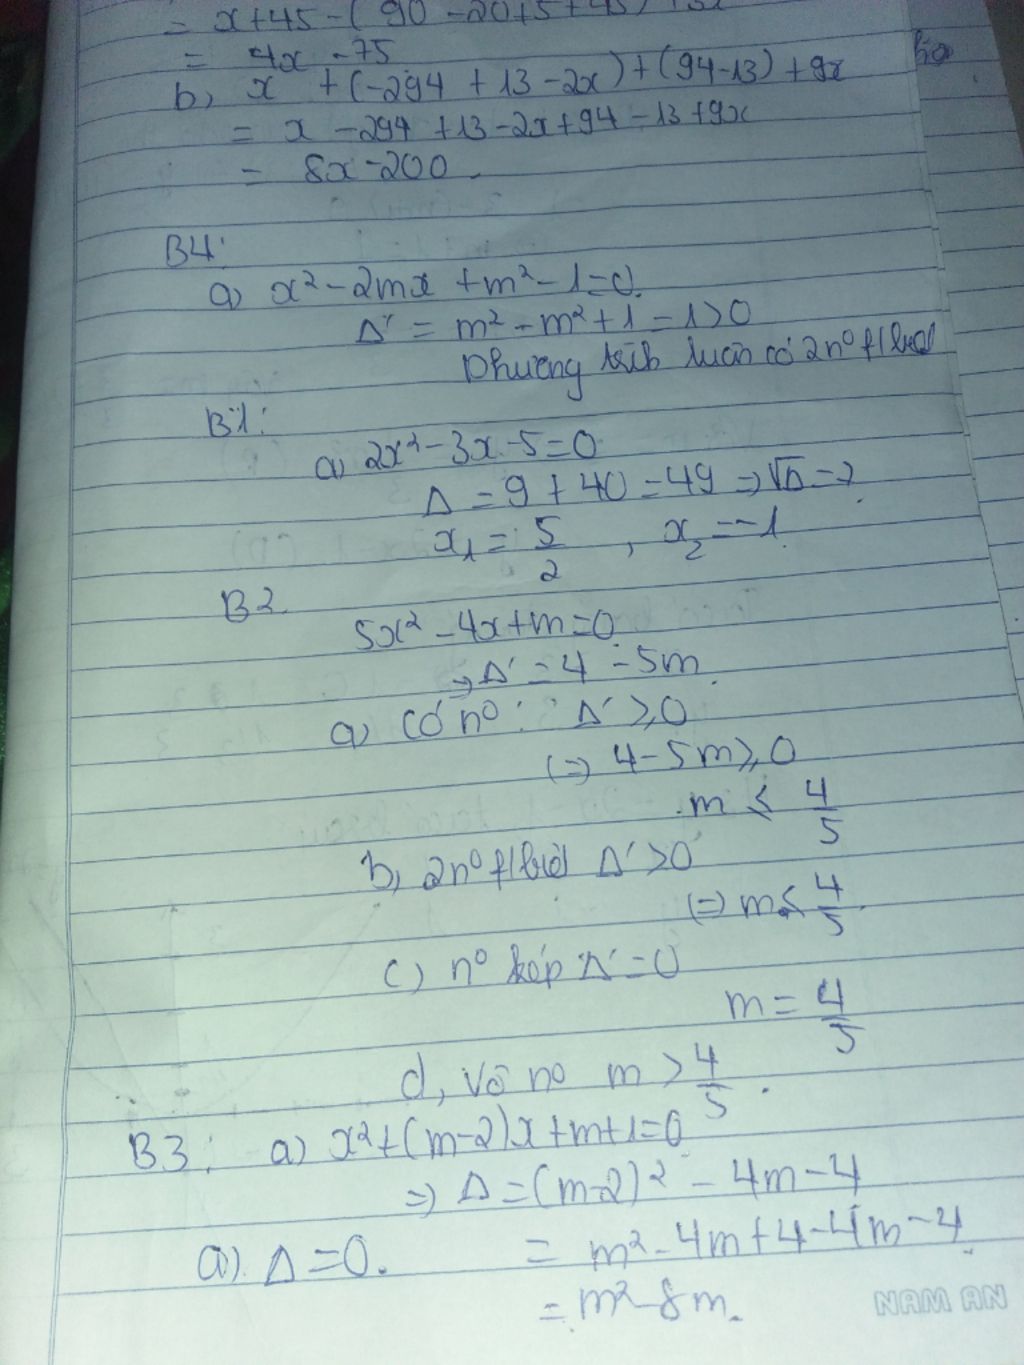 = x+45-(90-20+5+45)
= 4x-75
b, x +(-294 + 13 - 2x)+(94-13) + 9x
= x - 294 + 13 - 2x + 94 - 13 + 9x
= 8x - 200.
B4:
a) x² - 2mx + m² - 1 = 0.
Δ' = m² - m² + 1 = 1 > 0
Phương trình luôn có 2 n⁰ f/biệt
B1:
a) 2x² - 3x - 5 = 0
Δ = 9 + 40 = 49 => √Δ = 7
x₁ = 5/2, x₂ = -1
B2
5x² - 4x + m = 0
=> Δ' = 4 - 5m.
a) Có n⁰: Δ' ≥ 0
(=) 4 - 5m ≥ 0
m ≤ 4/5
b, 2n⁰ f/biệt Δ' > 0
(=) m < 4/5.
c) n⁰ kép Δ' = 0
m = 4/5
d, Vô n⁰ m > 4/5.
B3: a) x² + (m-2)x + m + 1 = 0
=> Δ = (m-2)² - 4m - 4
a). Δ = 0. = m² - 4m + 4 - 4m - 4.
= m² - 8m.
NAM AN